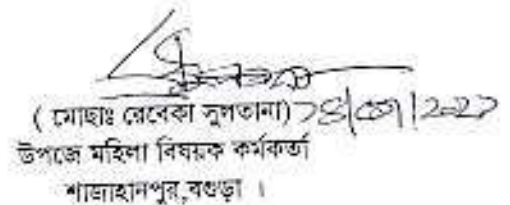 ( মোছাঃ রেবেকা সুলতানা)
উপজে মহিলা বিষয়ক কর্মকর্তা
শাজাহানপুর,বগুড়া ।